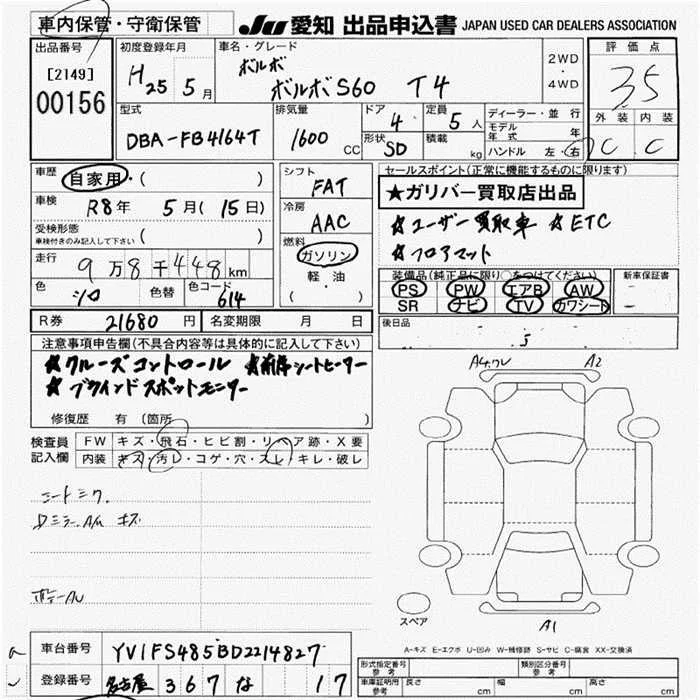 車内保管・守衛保管 JU 愛知 出品申込書 JAPAN USED CAR DEALERS ASSOCIATION
出品番号 初度登録年月 車名・グレード 評価点
[2149] H25 5月 ボルボ 2WD・4WD
00156 ボルボS60 T4 3.5
型式 排気量 ドア 4 定員 5人 ディーラー・並行 外装 内装
モデル年式 年
DBA-FB4164T 1600cc 形状 SD 積載 kg ハンドル 左・右 C C
車歴 自家用・( ) シフト FAT セールスポイント(正常に機能するものに限ります)
★ガリバー買取店出品
車検 R8年 5月(15日) 冷房 AAC ★ユーザー買取車 ★ETC
受検形態 ( )
車検付きのみ記入して下さい
燃料 ガソリン ★フロアマット
走行 9万8千448km 軽・油 装備品(純正品に限り○をつけてください) 新車保証書
PS PW エアB AW
色 シロ 色替 色コード 614 ( ) SR ナビ TV カワシート
R券 21680円 名変期限 月 日 後日品
注意事項申告欄(不具合内容等は具体的に記入して下さい)
★クルーズコントロール ★前席シートヒーター
★ブラインドスポットモニター
A2
修復歴 有(箇所 )
検査員 FW キズ・飛石・ヒビ割・リペア跡・X要
記入欄 内装 キズ・汚レ・コゲ・穴・スレ・キレ・破レ
シートミク.
Dミラー.AU キズ
スペア
A1
A-キズ E-エクボ U-凹み W-補修跡 S-サビ C-腐食 XX-交換済
車台番号 YV1FS485BD2214827
登録番号 名古屋 367 な 17
形式指定番号 参考 類別区分番号 参考
車庫証明用 参考 長さ cm 幅 cm 高さ cm